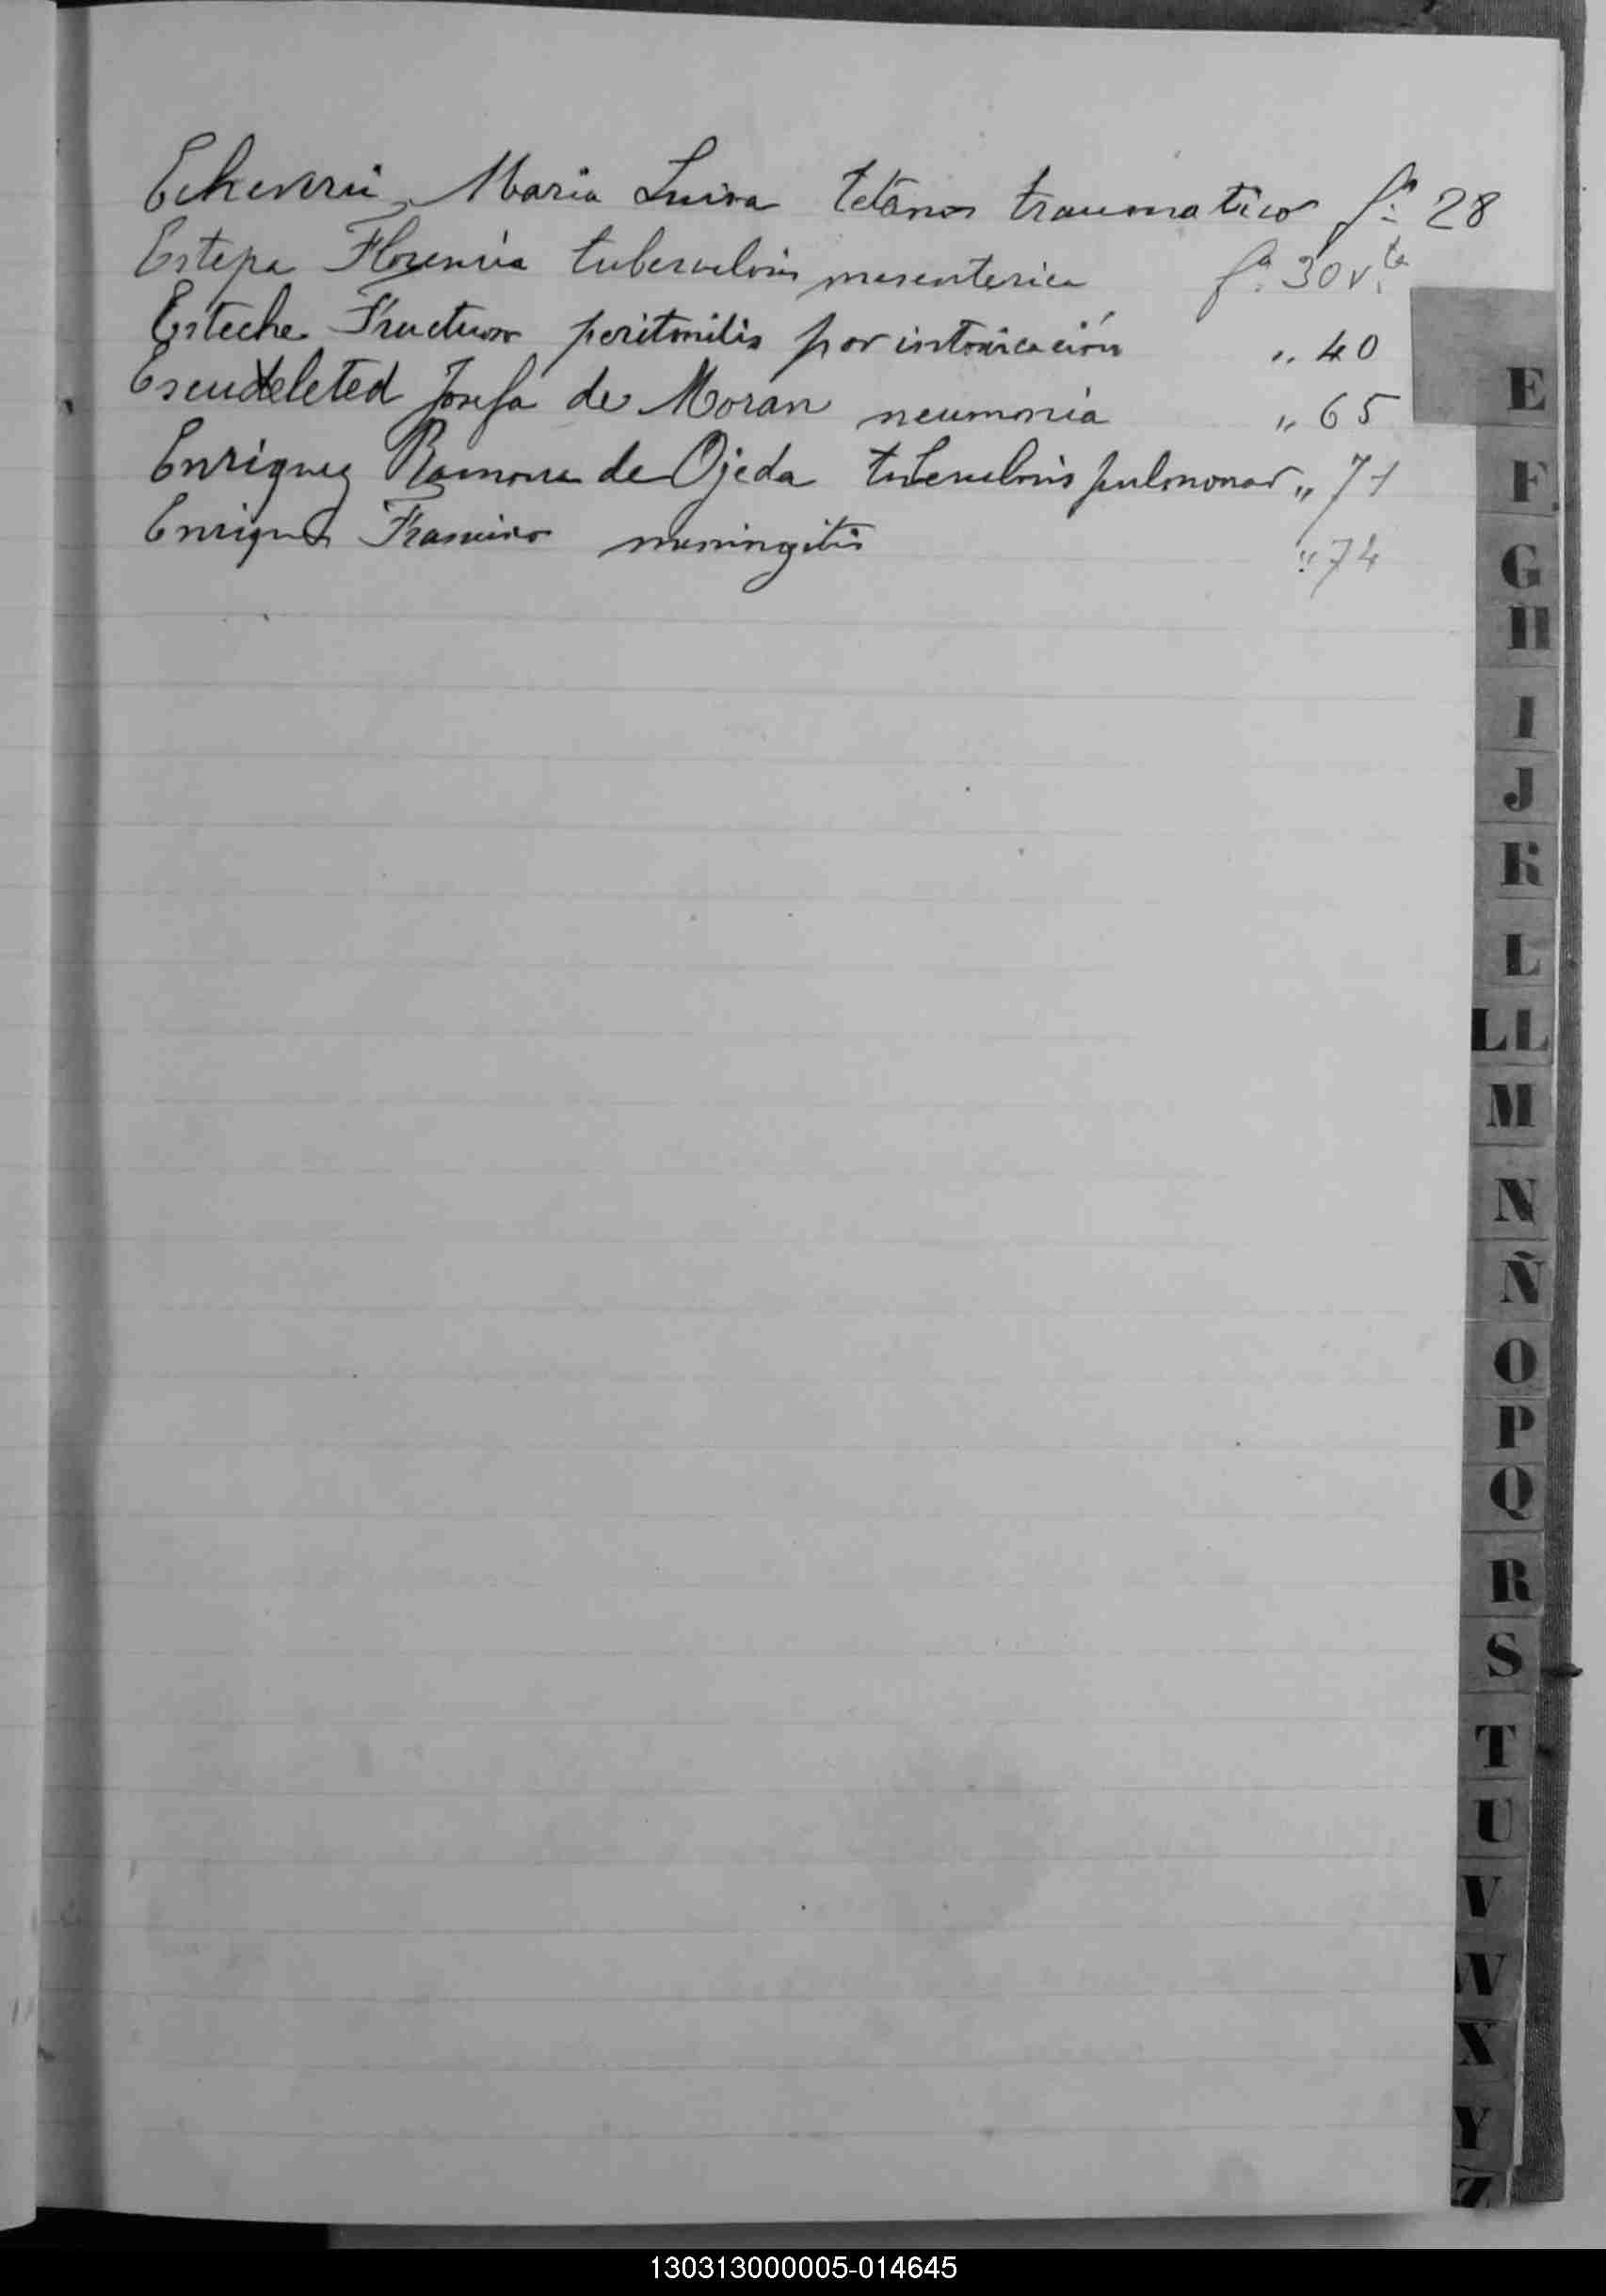 Echeverria Maria Luisa tetános traumatico fº 28
Estepa Florencia tuberculosis mesenterica fº 30 vta
Esteche Fructuoso peritonitis por intoxicación " 40
Josefa de Moran neumonia " 65
Enriquez Ramona de Ojeda tuberculosis pulmonar " 71
Enriquez Francisco meningitis " 74
E
F
G
H
I
J
K
L
LL
M
N
Ñ
O
P
Q
R
S
T
U
V
W
X
Y
Z
130313000005-014645